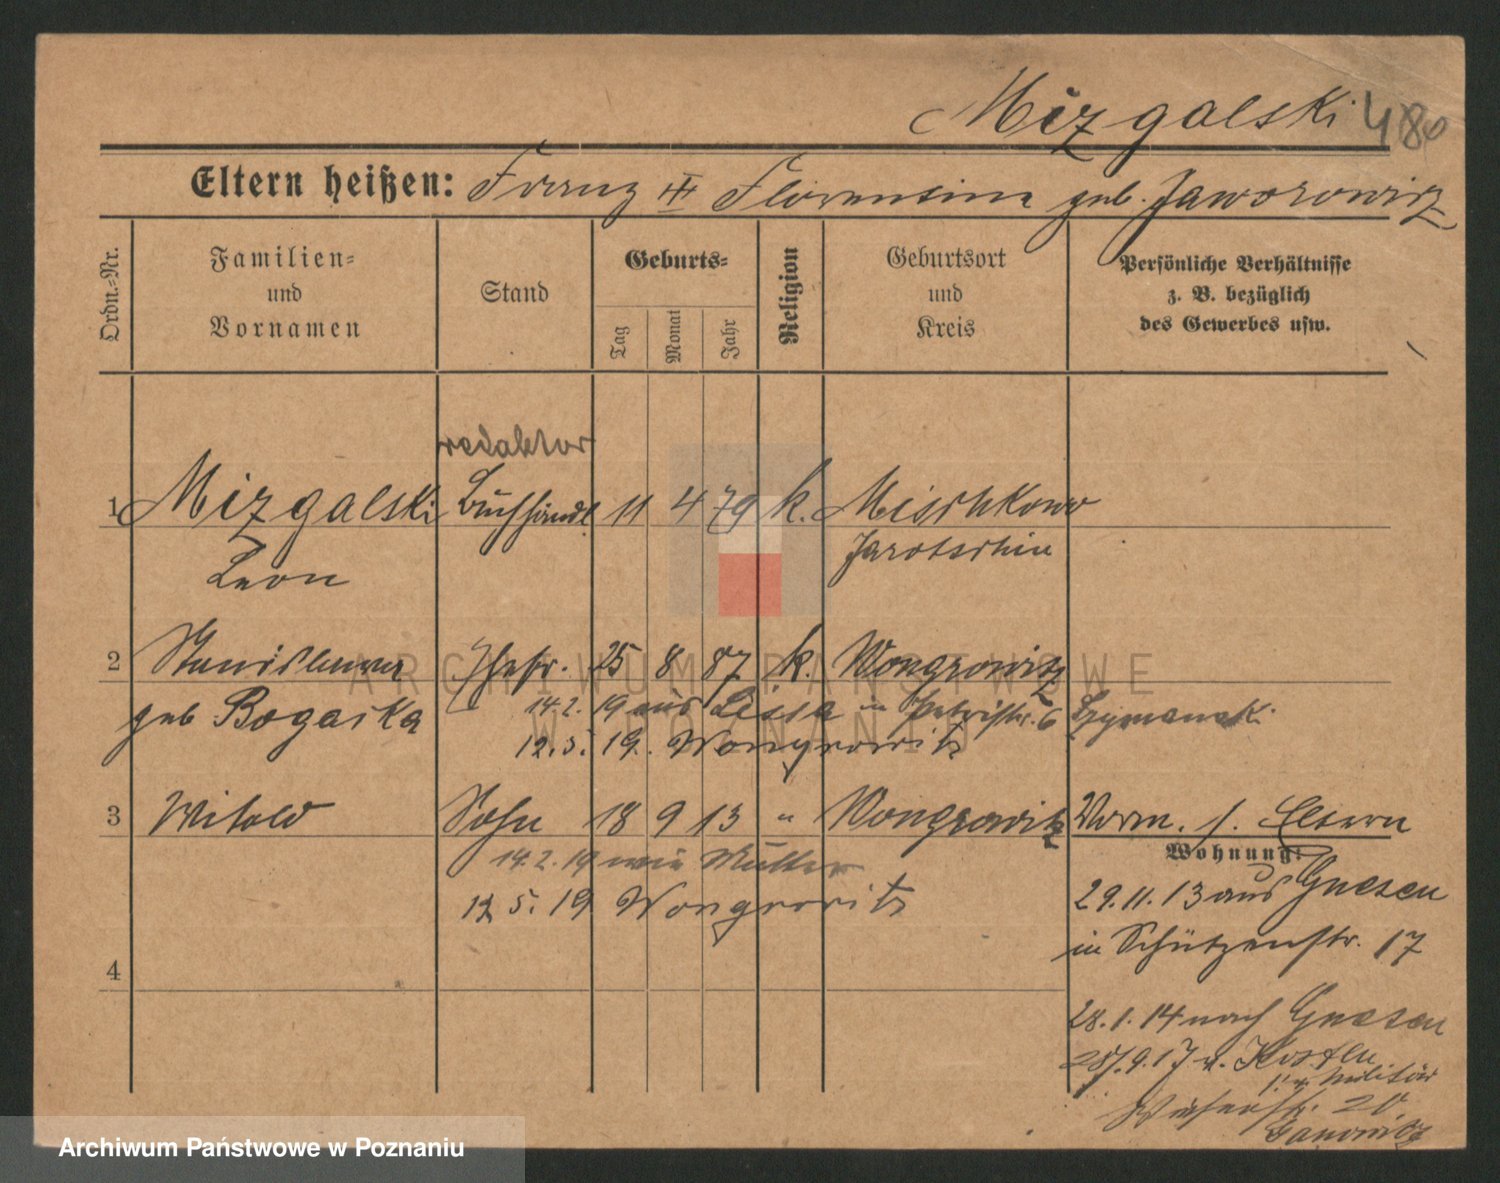 Mizgalski 480
Eltern heißen: Franz III Florentine geb. Jaworowicz
Ordn.-Nr.
Familien-
und
Vornamen
Stand
Geburts-
Tag
Monat
Jahr
Religion
Geburtsort
und
Kreis
Persönliche Verhältnisse
z. B. bezüglich
des Gewerbes usw.
redaktor
1 Mizgalski Buchhändl 11 4 79 k. Mieschkowo
Leon Jarotschin
2 Stanislawa Ehefr. 25 8 87 k. Wongrowitz
geb Bogacka 14.2. 19 aus Lissa in Petristr. 6 Szymanski
12.5. 19. Wongrowitz
3 Witold Sohn 18 9 13 " Wongrowitz Vorm. s. Eltern
14.2.19 wie Mutter
12 5. 19 Wongrowitz
Wohnung:
29.11.13 aus Gnesen
in Schützenstr. 17
4
28.1.14 nach Gnesen
28/.9.17 v. Kosten
v. Militär
20
Janowitz
ARCHIWUM PAŃSTWOWE
W POZNANIU
Archiwum Państwowe w Poznaniu